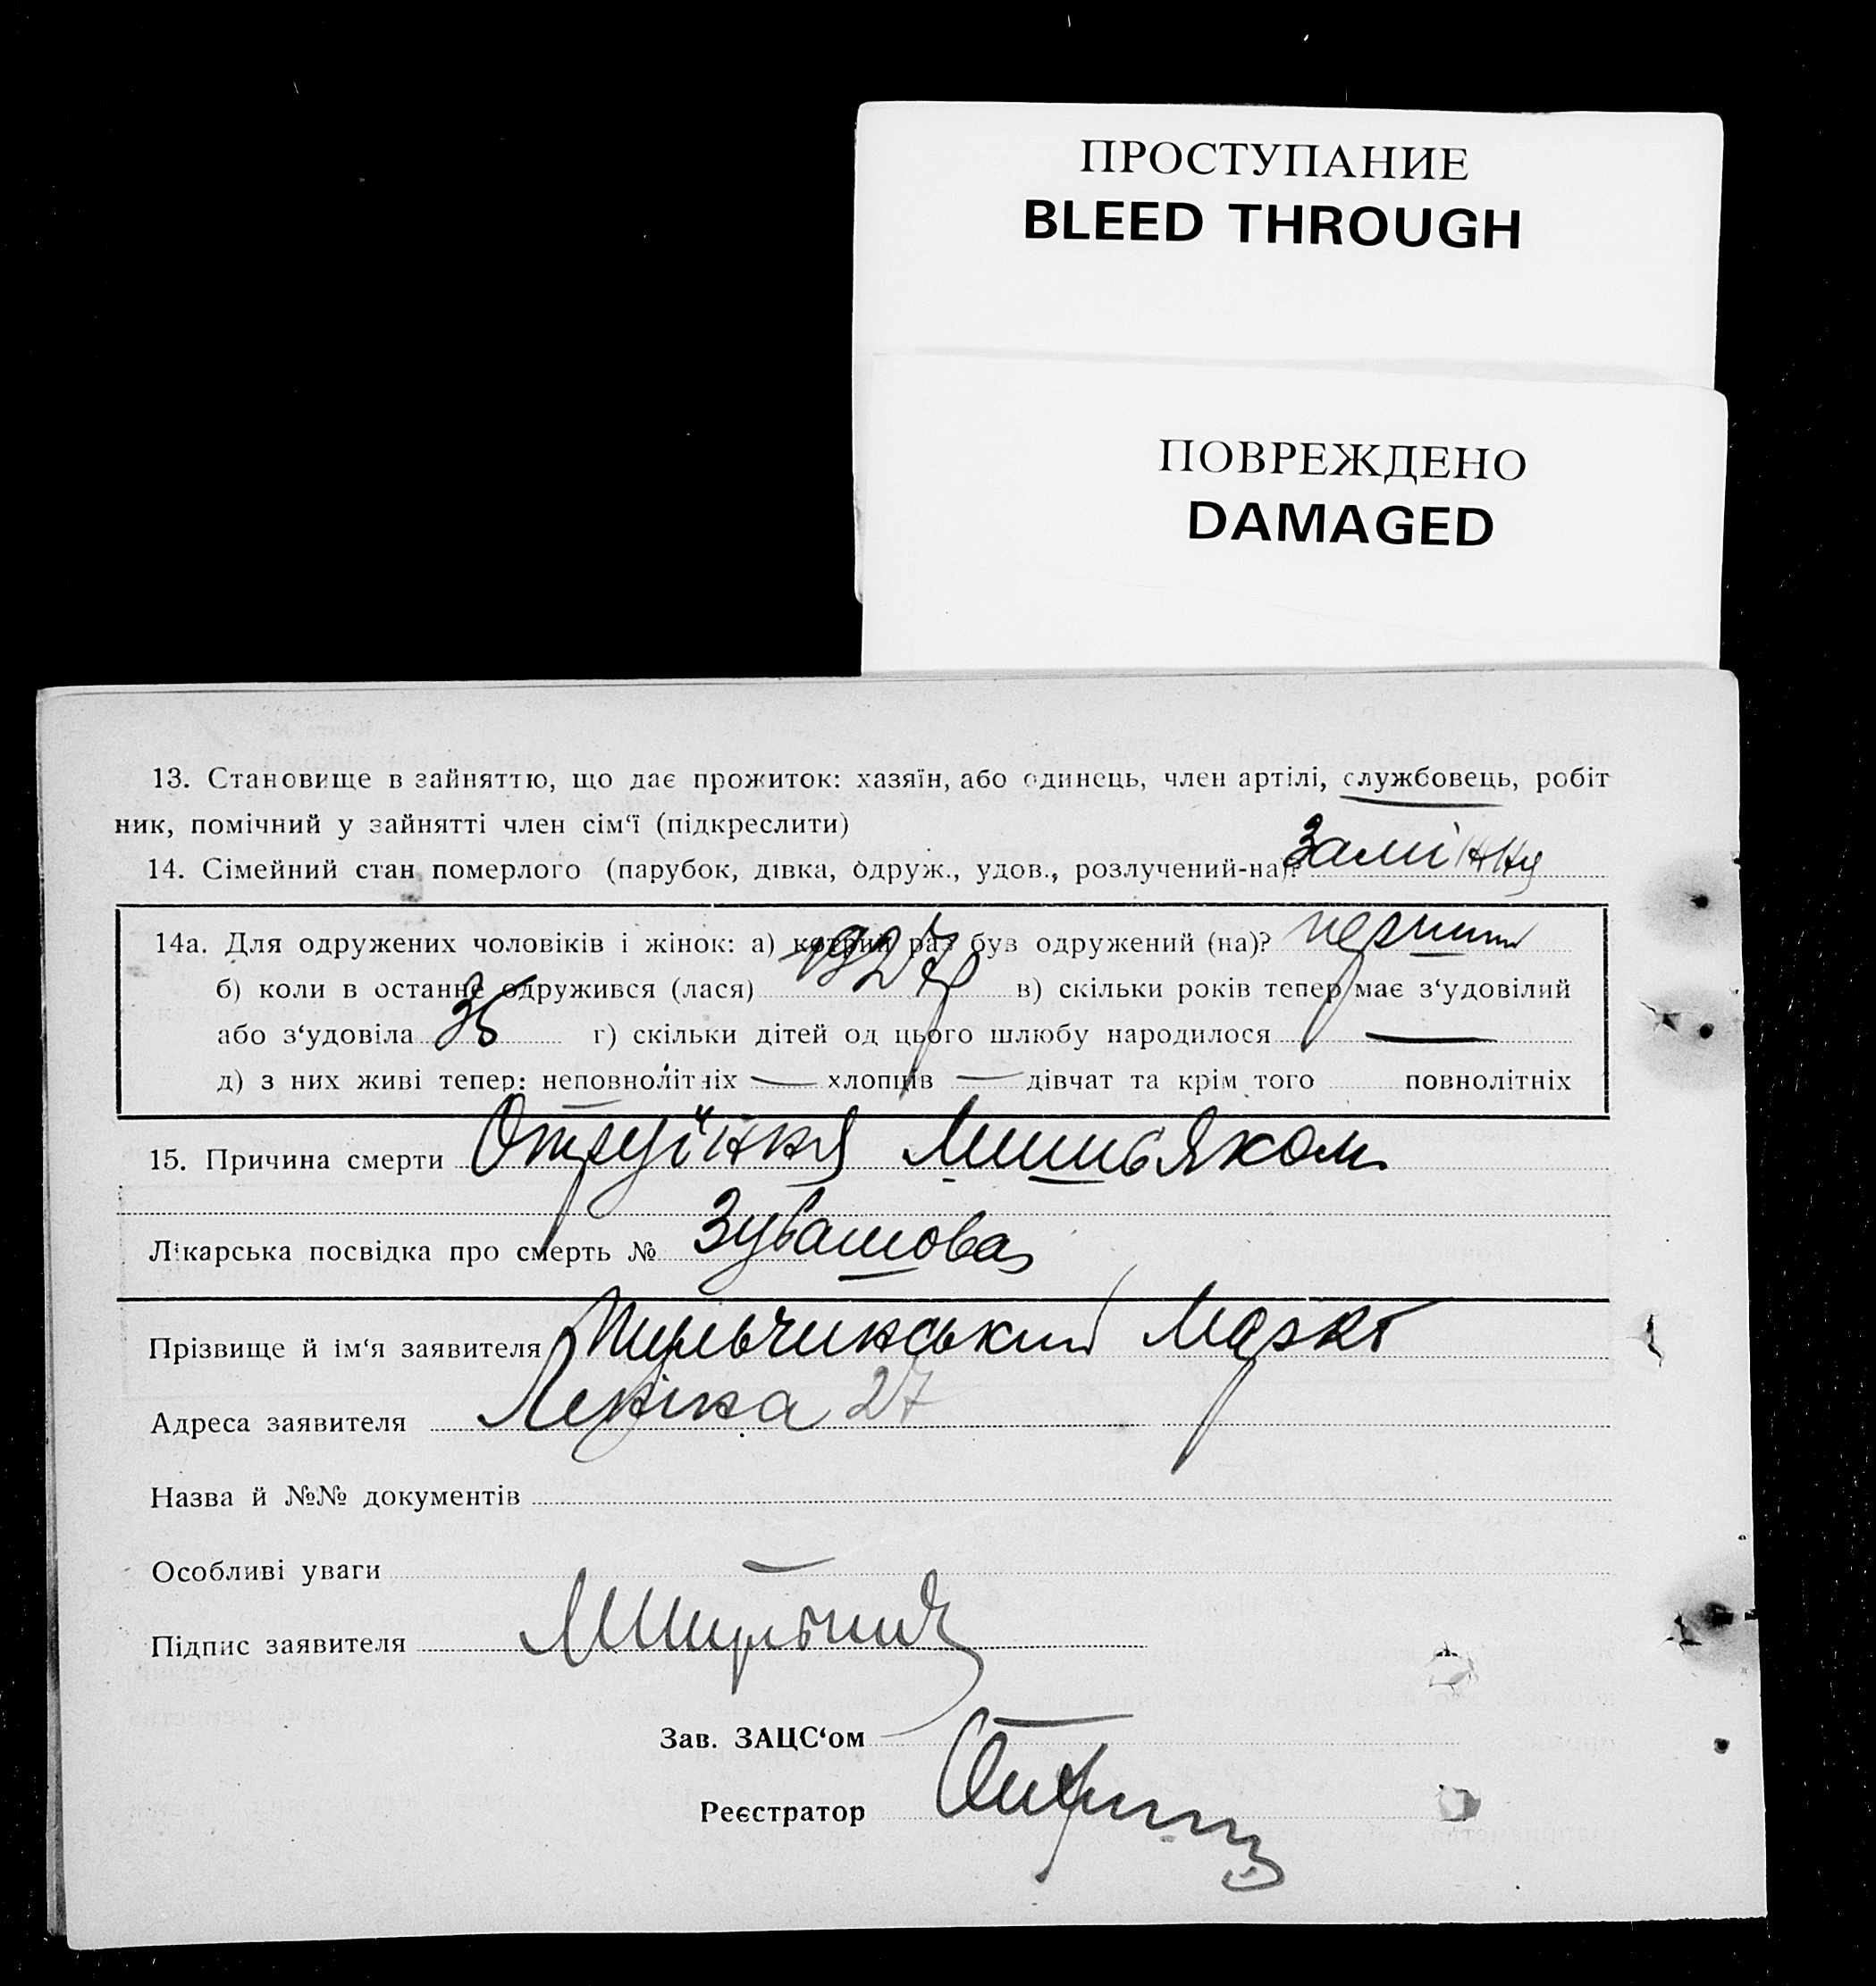 ПРОСТУПАНИЕ
BLEED THROUGH
ПОВРЕЖДЕНО
DAMAGED
13. Становище в зайняттю, що дає прожиток: хазяїн, або одинець, член артілі, службовець, робіт
ник, помічний у зайнятті член сім‘ї (підкреслити)
14. Сімейний стан померлого (парубок, дівка, одруж., удов., розлучений-на)? Замі́жня
14а. Для одружених чоловіків і жінок: а) котрий раз був одружений (на)? перший
б) коли в останнє одружився (лася) 1927 р в) скільки років тепер має з‘удовілий
або з‘удовіла 36 г) скільки дітей од цього шлюбу народилося —
д) з них живі тепер: неповнолітніх — хлопців — дівчат та крім того повнолітніх
15. Причина смерти Отруїння Мишьяком
Лікарська посвідка про смерть № Зубашова
Прізвище й ім‘я заявителя Шульчинський Марко
Адреса заявителя Леніна 27
Назва й №№ документів
Особливі уваги —
Підпис заявителя
Зав. ЗАЦС‘ом —
Реєстратор